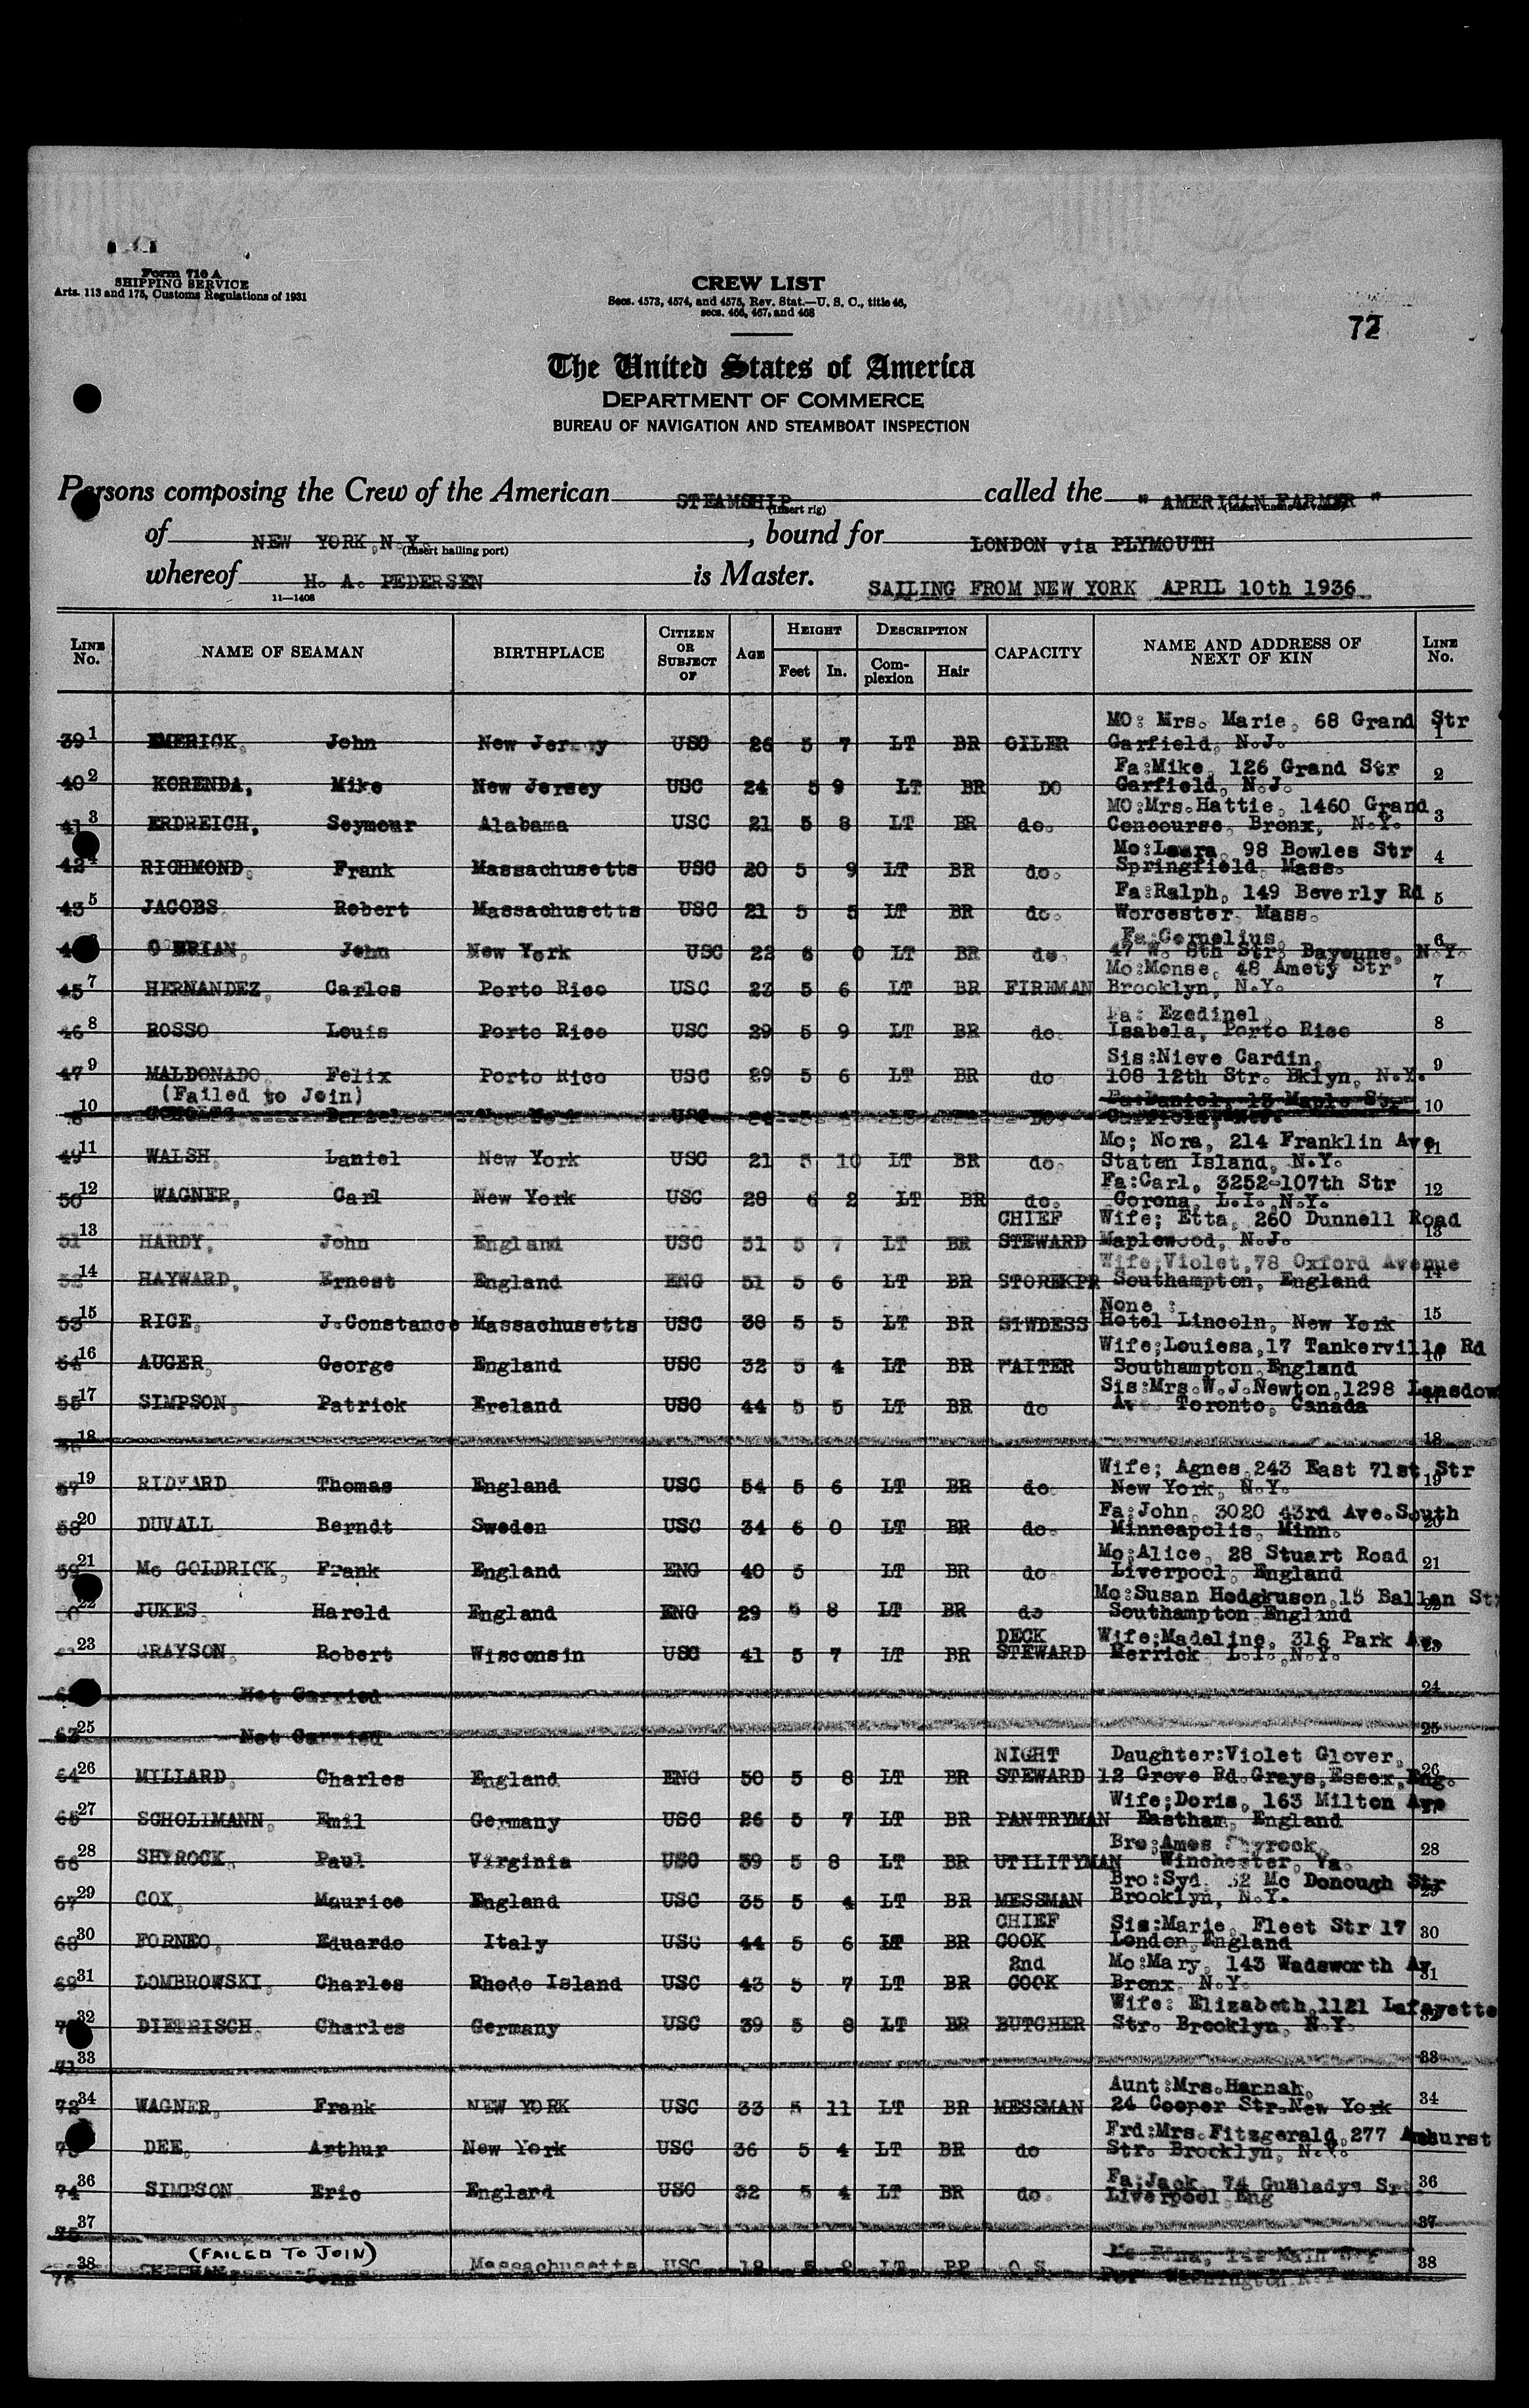 Form 710 A
SHIPPING SERVICE
Arts. 113 and 175, Customs Regulations of 1931
CREW LIST
Secs. 4573, 4574, and 4575, Rev. Stat.—U. S. C., title 46,
secs. 466, 467, and 468
72
The United States of America
DEPARTMENT OF COMMERCE
BUREAU OF NAVIGATION AND STEAMBOAT INSPECTION
Persons composing the Crew of the American STEAMSHIP called the " AMERICAN FARMER "
(Insert rig) (Insert name of vessel)
of NEW YORK, N.Y. , bound for LONDON via PLYMOUTH
(Insert hailing port)
whereof H. A. PEDERSEN is Master. SAILING FROM NEW YORK APRIL 10th 1936
11—1408
LINE No. NAME OF SEAMAN BIRTHPLACE CITIZEN OR SUBJECT OF AGE HEIGHT Feet In. DESCRIPTION Complexion Hair CAPACITY NAME AND ADDRESS OF NEXT OF KIN LINE No.
MO: Mrs. Marie, 68 Grand Str
39 1 EMERICK, John New Jersey USC 26 5 7 LT BR OILER Garfield, N.J. 1
Fa:Mike, 126 Grand Str
40 2 KORENDA, Mike New Jersey USC 24 5 9 LT BR DO Garfield, N.J. 2
MO:Mrs.Hattie, 1460 Grand
41 3 ERDREICH, Seymour Alabama USC 21 5 8 LT BR do. Concourse, Bronx, N.Y. 3
Mo:Laura, 98 Bowles Str
42 4 RICHMOND, Frank Massachusetts USC 20 5 9 LT BR do. Springfield, Mass. 4
Fa:Ralph, 149 Beverly Rd
43 5 JACOBS, Robert Massachusetts USC 21 5 5 LT BR do. Worcester, Mass. 5
Fa:Cornelius,
O'BRIAN, John New York USC 22 6 0 LT BR do. 47 W. 8th Str. Bayonne, N.Y. 6
Mo:Monse, 48 Amety Str
45 7 HERNANDEZ, Carlos Porto Rico USC 5 6 LT BR FIREMAN Brooklyn, N.Y. 7
Fa: Ezedinel,
46 8 ROSSO Louis Porto Rico USC 29 5 9 LT BR do. Isabela, Porto Rico 8
Sis:Nieve Cardin,
47 9 MALDONADO, Felix Porto Rico USC 29 5 6 LT BR do 108 12th Str. Bklyn, N.Y. 9
(Failed to Join)
Fa:Daniel, 13 Maple Str
10 New York USC DO 10
Mo; Nora, 214 Franklin Ave
49 11 WALSH, Laniel New York USC 21 5 10 LT BR do. Staten Island, N.Y. 11
Fa:Carl, 3252-107th Str
50 12 WAGNER, Carl New York USC 28 6 2 LT BR do. Corona, L.I. N.Y. 12
CHIEF Wife; Etta, 260 Dunnell Road
51 13 HARDY, John England USC 51 5 7 LT BR STEWARD Maplewood, N.J. 13
Wife;Violet,78 Oxford Avenue
52 14 HAYWARD, Ernest England ENG 51 5 6 LT BR STOREKPR Southampton, England 14
None :
53 15 RICE, J.Constance Massachusetts USC 38 5 5 LT BR STWDESS Hotel Lincoln, New York 15
Wife;Louiesa,17 Tankerville Rd
54 16 AUGER, George England USC 32 5 4 LT BR WAITER Southampton, England 16
Sis:Mrs.W.J.Newton,1298 Lansdow
55 17 SIMPSON, Patrick Ereland USC 44 5 5 LT BR do Av. Toronto, Canada 17
18 18
Wife; Agnes,243 East 71st Str
57 19 RIDYARD Thomas England USC 54 5 6 LT BR do. New York, N.Y. 19
Fa:John, 3020 43rd Ave.South
58 20 DUVALL Berndt Sweden USC 34 6 0 LT BR do. Minneapolis, Minn. 20
Mo;Alice, 28 Stuart Road
59 21 Mc GOLDRICK, Frank England ENG 40 5 LT BR do. Liverpool, England 21
Mo:Susan Hodgkuson,15 Ballan St
22 JUKES, Harold England ENG 29 5 8 LT BR do Southampton England 22
DECK Wife;Madeline, 316 Park Av.
23 GRAYSON, Robert Wisconsin USC 41 5 7 LT BR STEWARD Merrick L.I. N.Y. 23
Not Carried 24
63 25 Not Carried 25
NIGHT Daughter:Violet Glover,
64 26 MILLARD, Charles England ENG 50 5 8 LT BR STEWARD 12 Grove Rd.Grays,Essex,Eng. 26
Wife;Doris, 163 Milton Ave
65 27 SCHOLIMANN, Emil Germany USC 26 5 7 LT BR PANTRYMAN Eastham, England 27
Bro;Ames Shyrock,
66 28 SHYROCK, Paul Virginia USC 39 5 8 LT BR UTILITYMAN Winchester, Va. 28
Bro:Syd. 32 Mc Donough Str
67 29 COX, Maurice England USC 35 5 4 LT BR MESSMAN Brooklyn, N.Y. 29
CHIEF Sis:Marie, Fleet Str 17
68 30 FORNEO, Eduardo Italy USC 44 5 6 LT BR COOK London,England 30
2nd Mo:Mary, 143 Wadsworth Av
69 31 LOMBROWSKI, Charles Rhode Island USC 43 5 7 LT BR COOK Bronx, N.Y. 31
Wife: Elizabeth,1121 Lafayette
32 DIETRISCH, Charles Germany USC 39 5 8 LT BR BUTCHER Str. Brooklyn, N.Y. 32
71 33 33
Aunt:Mrs.Hannah,
72 34 WAGNER, Frank NEW YORK USC 33 5 11 LT BR MESSMAN 24 Cooper Str.New York 34
Frd:Mrs.Fitzgerald,277 Amhurst
DEE, Arthur New York USC 36 5 4 LT BR do Str. Brooklyn, N.Y.
Fa;Jack, 74
74 36 SIMPSON Eric England USC 32 5 4 LT BR do. Liverpool Eng 36
75 37 37
(FAILED TO JOIN)
38 John Massachusetts USC 5 LT BR O.S. Washington 38